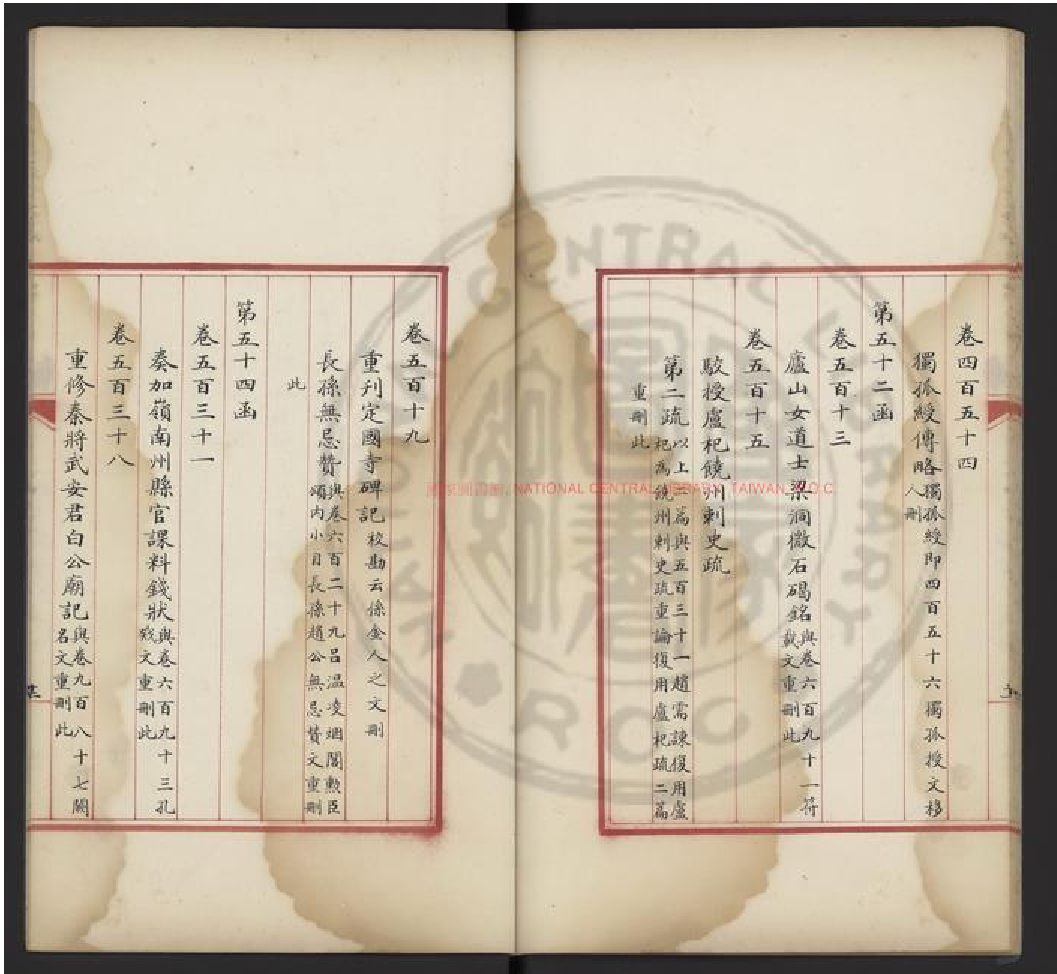 卷四百五十四
獨孤綬傳略獨孤綬即四百五十六獨孤授文移
入刪
第五十二函
卷五百十三
廬山女道士梁洞微石碣銘與卷六百九十一符
載文重刪此
卷五百十五
駮授盧杞饒州刺史疏
第二疏以上二篇與五百三十一趙需諫復用盧
杞為饒州刺史疏重論復用盧杞疏二篇
重刪此
卷五百十九
重刋定國寺碑記校勘云係金人之文刪
長孫無忌贊與卷六百二十九呂温凌烟閣勲臣
頌内小目長孫趙公無忌贊文重刪
此
第五十四函
卷五百三十一
奏加嶺南州縣官課料錢狀與卷六百九十三孔
戣文重刪此
卷五百三十八
重修秦將武安君白公廟記與卷九百八十七闕
名文重刪此
國家圖書館, NATIONAL CENTRAL LIBRARY, TAIWAN, R.O.C
NATIONAL CENTRAL LIBRARY
ROC